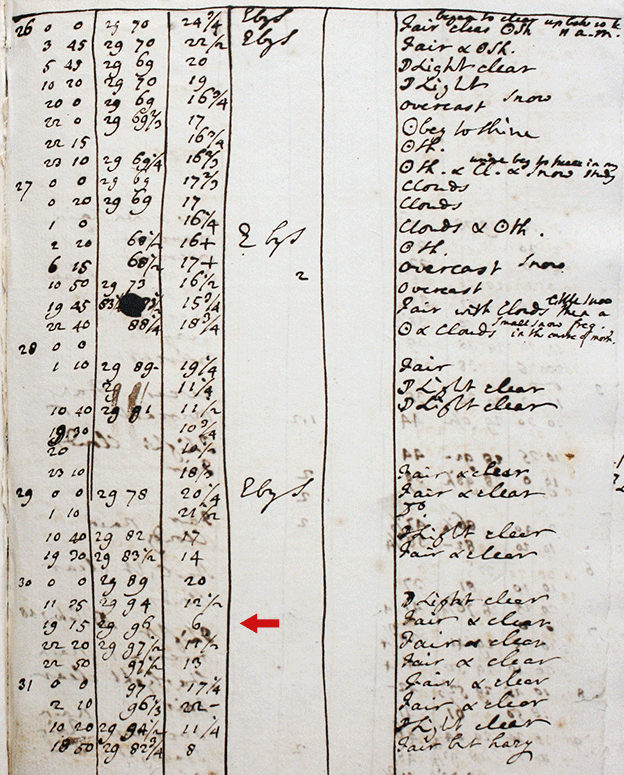 began to clear up betw 10 &
26 0 0 29 70 24 3/4 E by S Fair clear ☉sh 11 a.m.
3 45 29 70 22 1/2 E by S Fair & ☉sh.
5 45 29 69 20 ☽ Light clear
10 20 29 70 19 ☽ Light
20 0 29 69 16 3/4 overcast snow
22 0 29 69 2/3 17 ☉ beg to shine
22 15 16 3/4 ☉sh.
23 10 29 69 1/4 16 2/3 ☉sh. & Cl. & snow study
27 0 0 29 69 17 2/3 Clouds
0 20 29 69 17 Clouds
1 0 16 3/4 Clouds & ☉sh.
2 20 68 1/2 16+ E by S ☉sh.
6 15 68 1/2 17+ overcast snow
10 50 29 73 16 1/2 2 overcast
19 45 15 3/4 Fair with Clouds
22 40 88 1/4 18 3/4 ☉ & Clouds small snow
28 0 0
1 10 29 89- 19 1/4 Fair
29 11 1/4 ☽ Light clear
10 40 29 91 11 1/2 ☽ Light clear
19 30 10 3/4
20 10 1/2
23 10 18 1/2 Fair & clear
29 0 0 29 78 20 1/4 E by S Fair & clear
1 10 22 1/2 Do.
10 40 29 82 17 ☽ Light clear
19 30 29 83 1/2 14 Fair & clear
30 0 0 29 89 20
11 25 29 94 12 1/2 ☽ Light clear
19 15 29 96 6 Fair & clear
22 20 29 97 1/2 Fair & clear
22 50 97 1/2 13 Fair & clear
31 0 0 97 17 1/4 Fair & clear
2 10 96 1/3 22- Fair & clear
10 20 29 94 1/2 11 1/4 ☽ Light clear
18 50 29 82 3/4 8 Fair but hazy